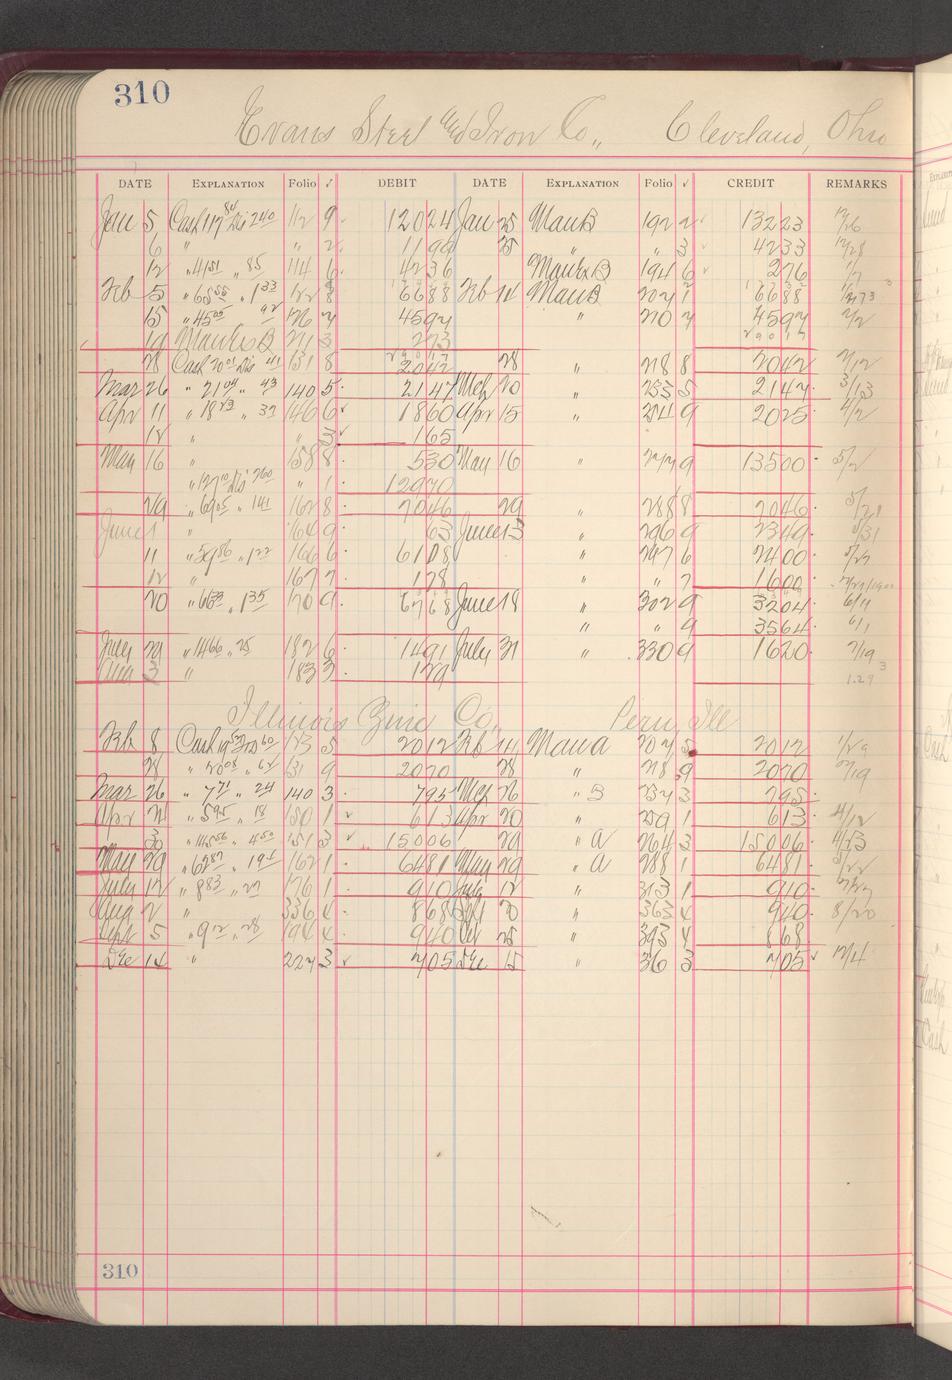 310
Evans Steel and Iron Co., Cleveland, Ohio
DATE EXPLANATION Folio √ DEBIT DATE EXPLANATION Folio √ CREDIT REMARKS
Jan 5 Cash 117 84 Dis 2 40 112 9 120 24 Jan 25 Mau B 192 2 132 23 12/26
6 " " 2 11 99 25 " " 3 42 33 12/28
12 " 41 51 " 85 114 6 42 36 Mau B 194 6 2 76
Feb 5 " 65 55 " 1 33 122 8 66 88 Feb 14 Mau B 207 1 66 88
15 " 45 05 " 92 126 7 45 97 " 210 7 45 97 2/2
19 Mau B 213 2 73
28 Cash 20 01 Dis 41 131 8 20 42 28 " 218 8 20 42 2/12
Mar 26 " 21 04 " 43 140 5 21 47 Mch 20 " 235 5 21 47 3/13
Apr 11 " 18 23 " 37 146 6 18 60 Apr 15 " 254 9 20 25 4/2
12 " " 3 1 65
May 16 " 158 8 5 30 May 16 " 277 9 135 00 5/2
" 127 10 Dis 2 60 " 1 129 70
29 " 69 05 " 1 41 162 8 70 46 29 " 288 8 70 46 5/21
June 1 " 164 9 63 June 13 " 296 9 23 49 5/31
11 " 59 86 " 1 22 166 6 61 08 " 297 6 24 00 5/27
12 " 167 7 1 28 " " 7 16 00
20 " 66 33 " 1 35 170 9 67 68 June 18 " 302 9 32 04 6/11
" " 9 35 64 6/1
July 29 " 14 66 " 25 182 6 14 91 July 31 " 330 9 16 20 7/19
Aug 3 " 183 3 1 29 1.29
Illinois Zinc Co., Peru, Ill
Feb 8 Cash 19 52 Dis 60 123 5 20 12 Feb 14 Mau A 207 5 20 12 1/29
28 " 20 08 " 62 131 9 20 70 28 " 218 9 20 70 2/19
Mar 26 " 7 71 " 24 140 3 7 95 Mch 26 " B 237 3 7 95
Apr 21 " 5 95 " 18 150 1 6 13 Apr 20 " 259 1 6 13 4/12
30 " 145 56 " 4 50 151 3 150 06 29 " A 264 3 150 06 4/23
May 29 " 62 87 " 1 94 162 1 64 81 May 29 " A 288 1 64 81 5/22
July 12 " 8 83 " 27 176 1 9 10 July 12 " 313 1 9 10
Aug 2 " 336 4 8 68 Sept 20 " 363 4 9 40 8/20
Sept 5 " 9 12 " 28 194 4 9 40 Oct 25 " 393 4 8 68
Dec 14 " 227 3 7 05 Dec 15 " 36 3 7 05 12/4
310